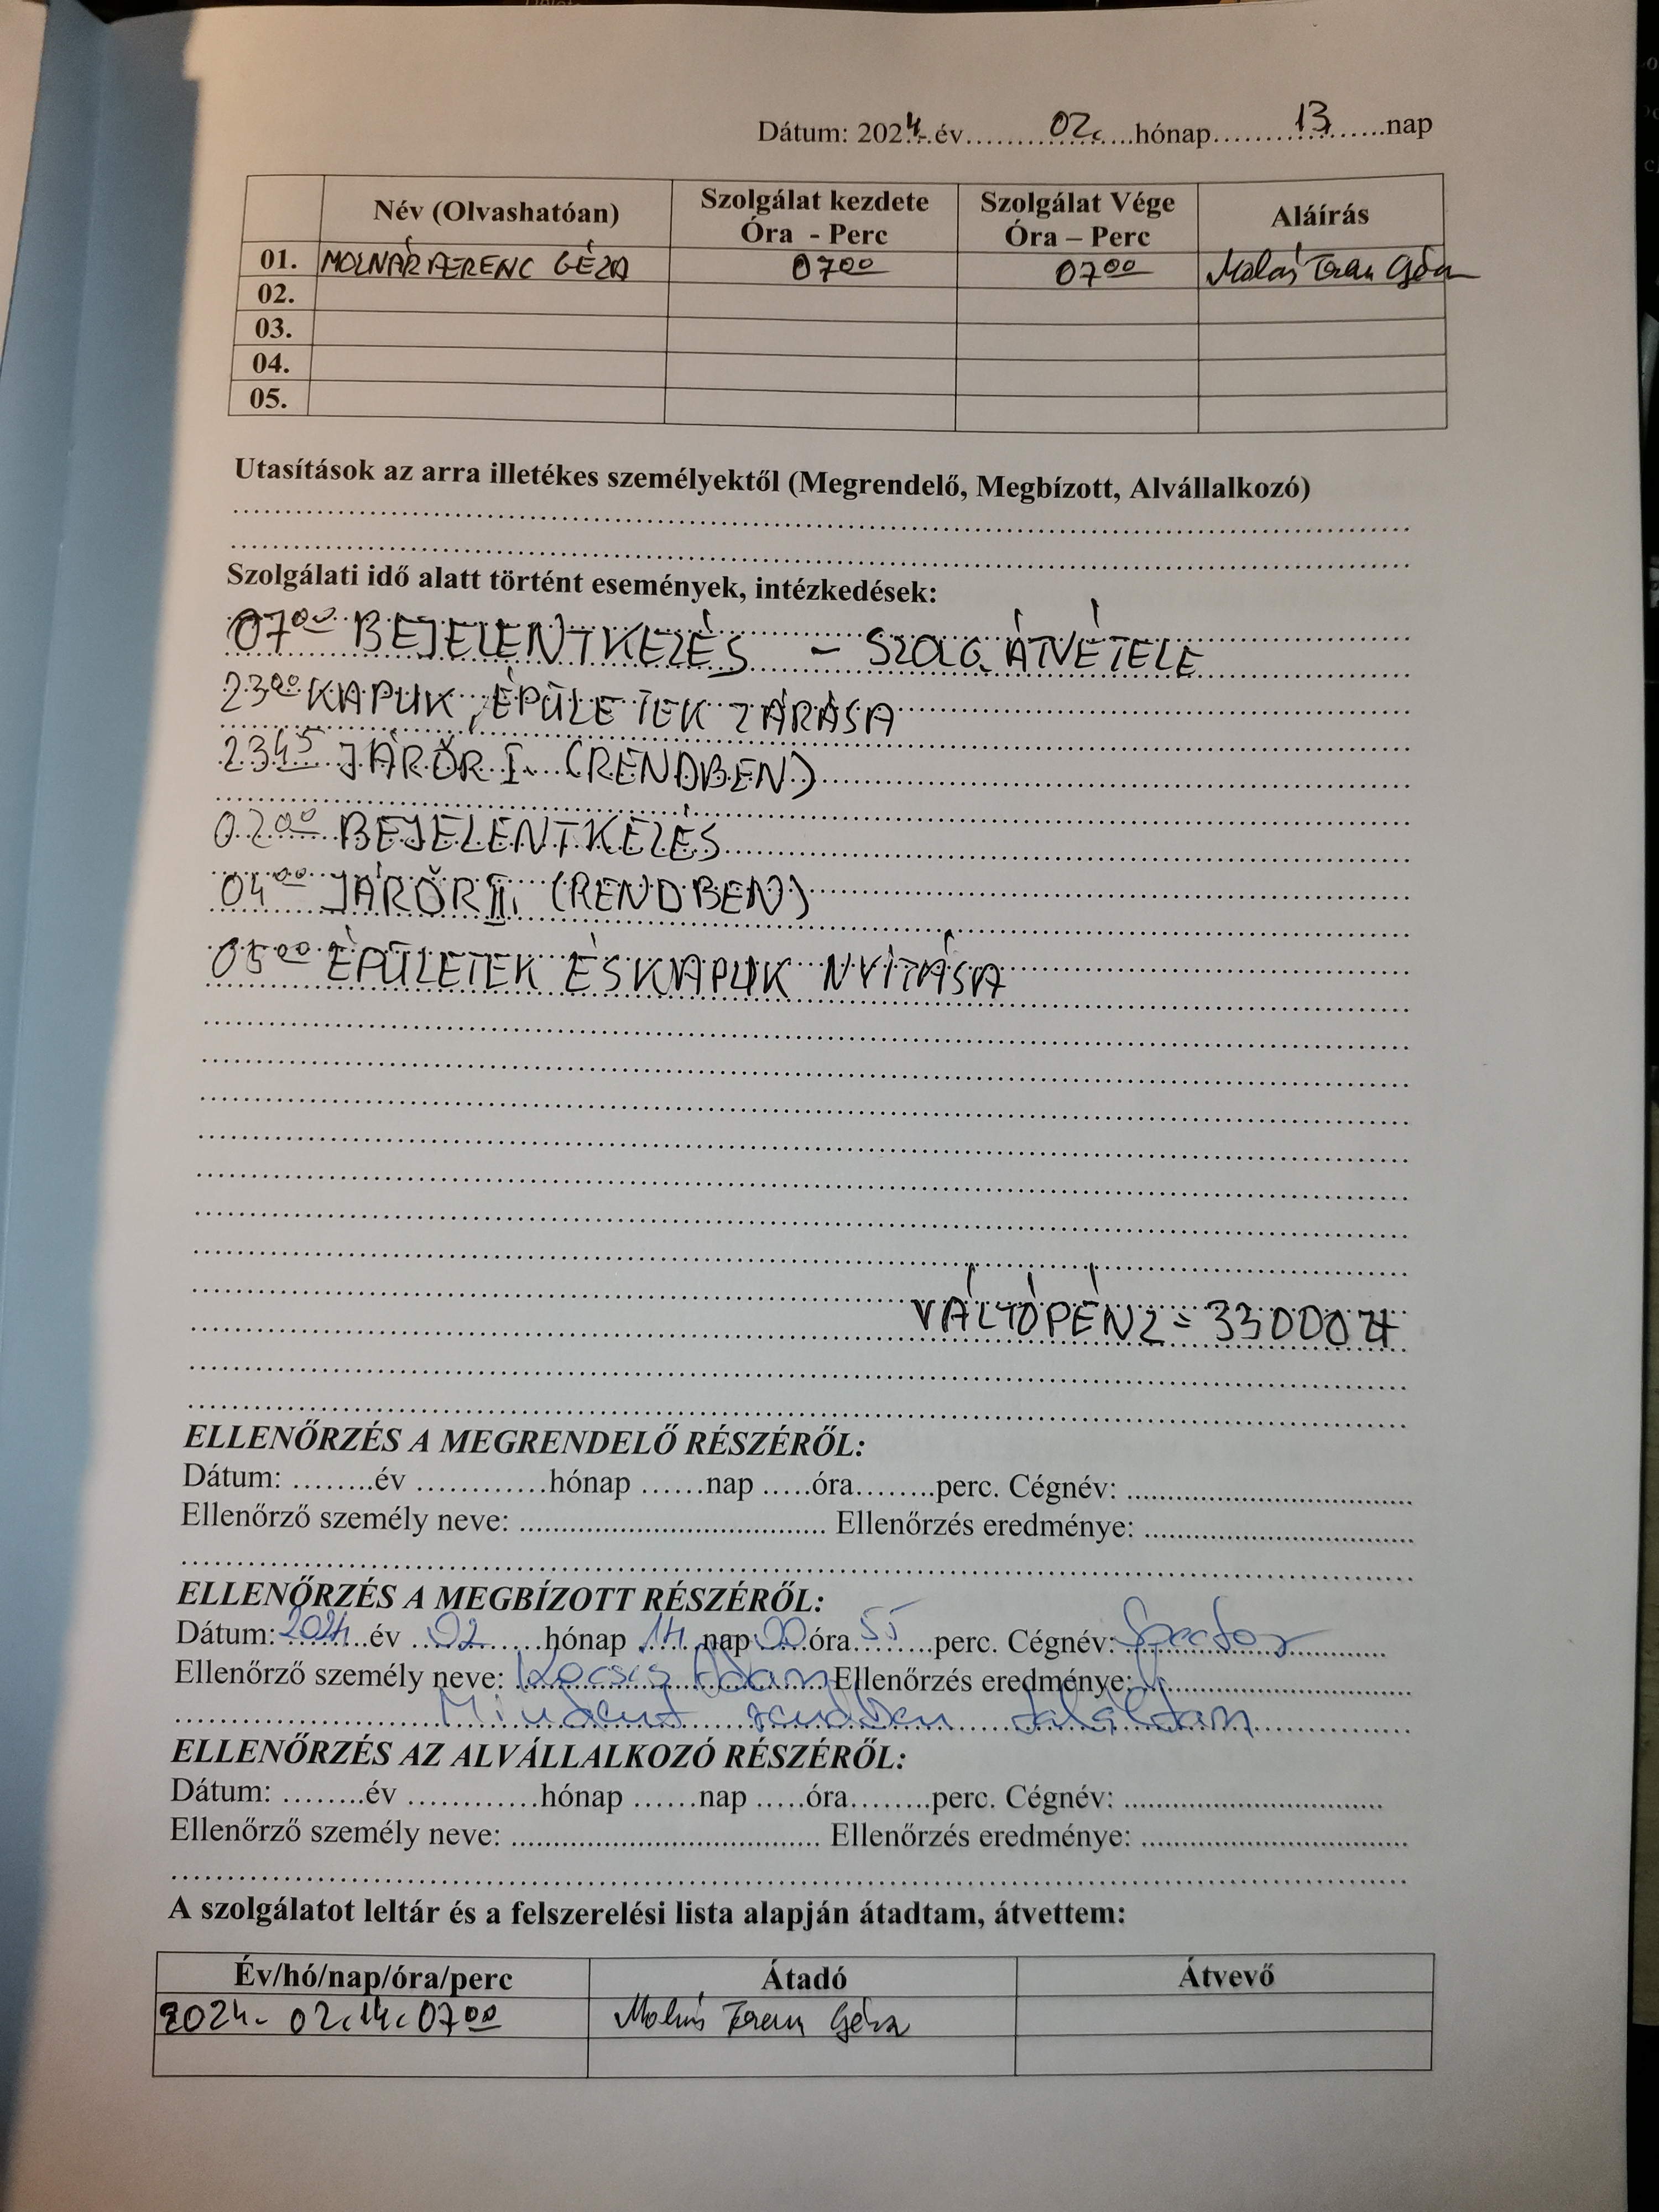 Dátum: 2024. év 02. hónap 13 nap
Név (Olvashatóan) Szolgálat kezdete Óra - Perc Szolgálat Vége Óra – Perc Aláírás
01. MOLNÁR FERENC GÉZA 07 00 07 00 Molnár Ferenc Géza
02.
03.
04.
05.
Utasítások az arra illetékes személyektől (Megrendelő, Megbízott, Alvállalkozó)
Szolgálati idő alatt történt események, intézkedések:
07 00 BEJELENTKEZÉS - SZOLG. ÁTVÉTELE
23 00 KAPUK, ÉPÜLETEK ZÁRÁSA
23 45 JÁRŐR I. (RENDBEN)
02 00 BEJELENTKEZÉS
04 00 JÁRŐR II. (RENDBEN)
05 00 ÉPÜLETEK ÉS KAPUK NYITÁSA
VÁLTÓPÉNZ = 33000 Ft
ELLENŐRZÉS A MEGRENDELŐ RÉSZÉRŐL:
Dátum: ........év ............hónap ......nap .....óra........perc. Cégnév:
Ellenőrző személy neve: Ellenőrzés eredménye:
ELLENŐRZÉS A MEGBÍZOTT RÉSZÉRŐL:
Dátum: 2024 év 02 hónap 14 nap 00 óra 55 perc. Cégnév:
Ellenőrző személy neve: Kocsis Ádám Ellenőrzés eredménye:
Mindent rendben találtam
ELLENŐRZÉS AZ ALVÁLLALKOZÓ RÉSZÉRŐL:
Dátum: ........év ............hónap ......nap .....óra........perc. Cégnév:
Ellenőrző személy neve: Ellenőrzés eredménye:
A szolgálatot leltár és a felszerelési lista alapján átadtam, átvettem:
Év/hó/nap/óra/perc Átadó Átvevő
2024. 02. 14. 07 00 Molnár Ferenc Géza